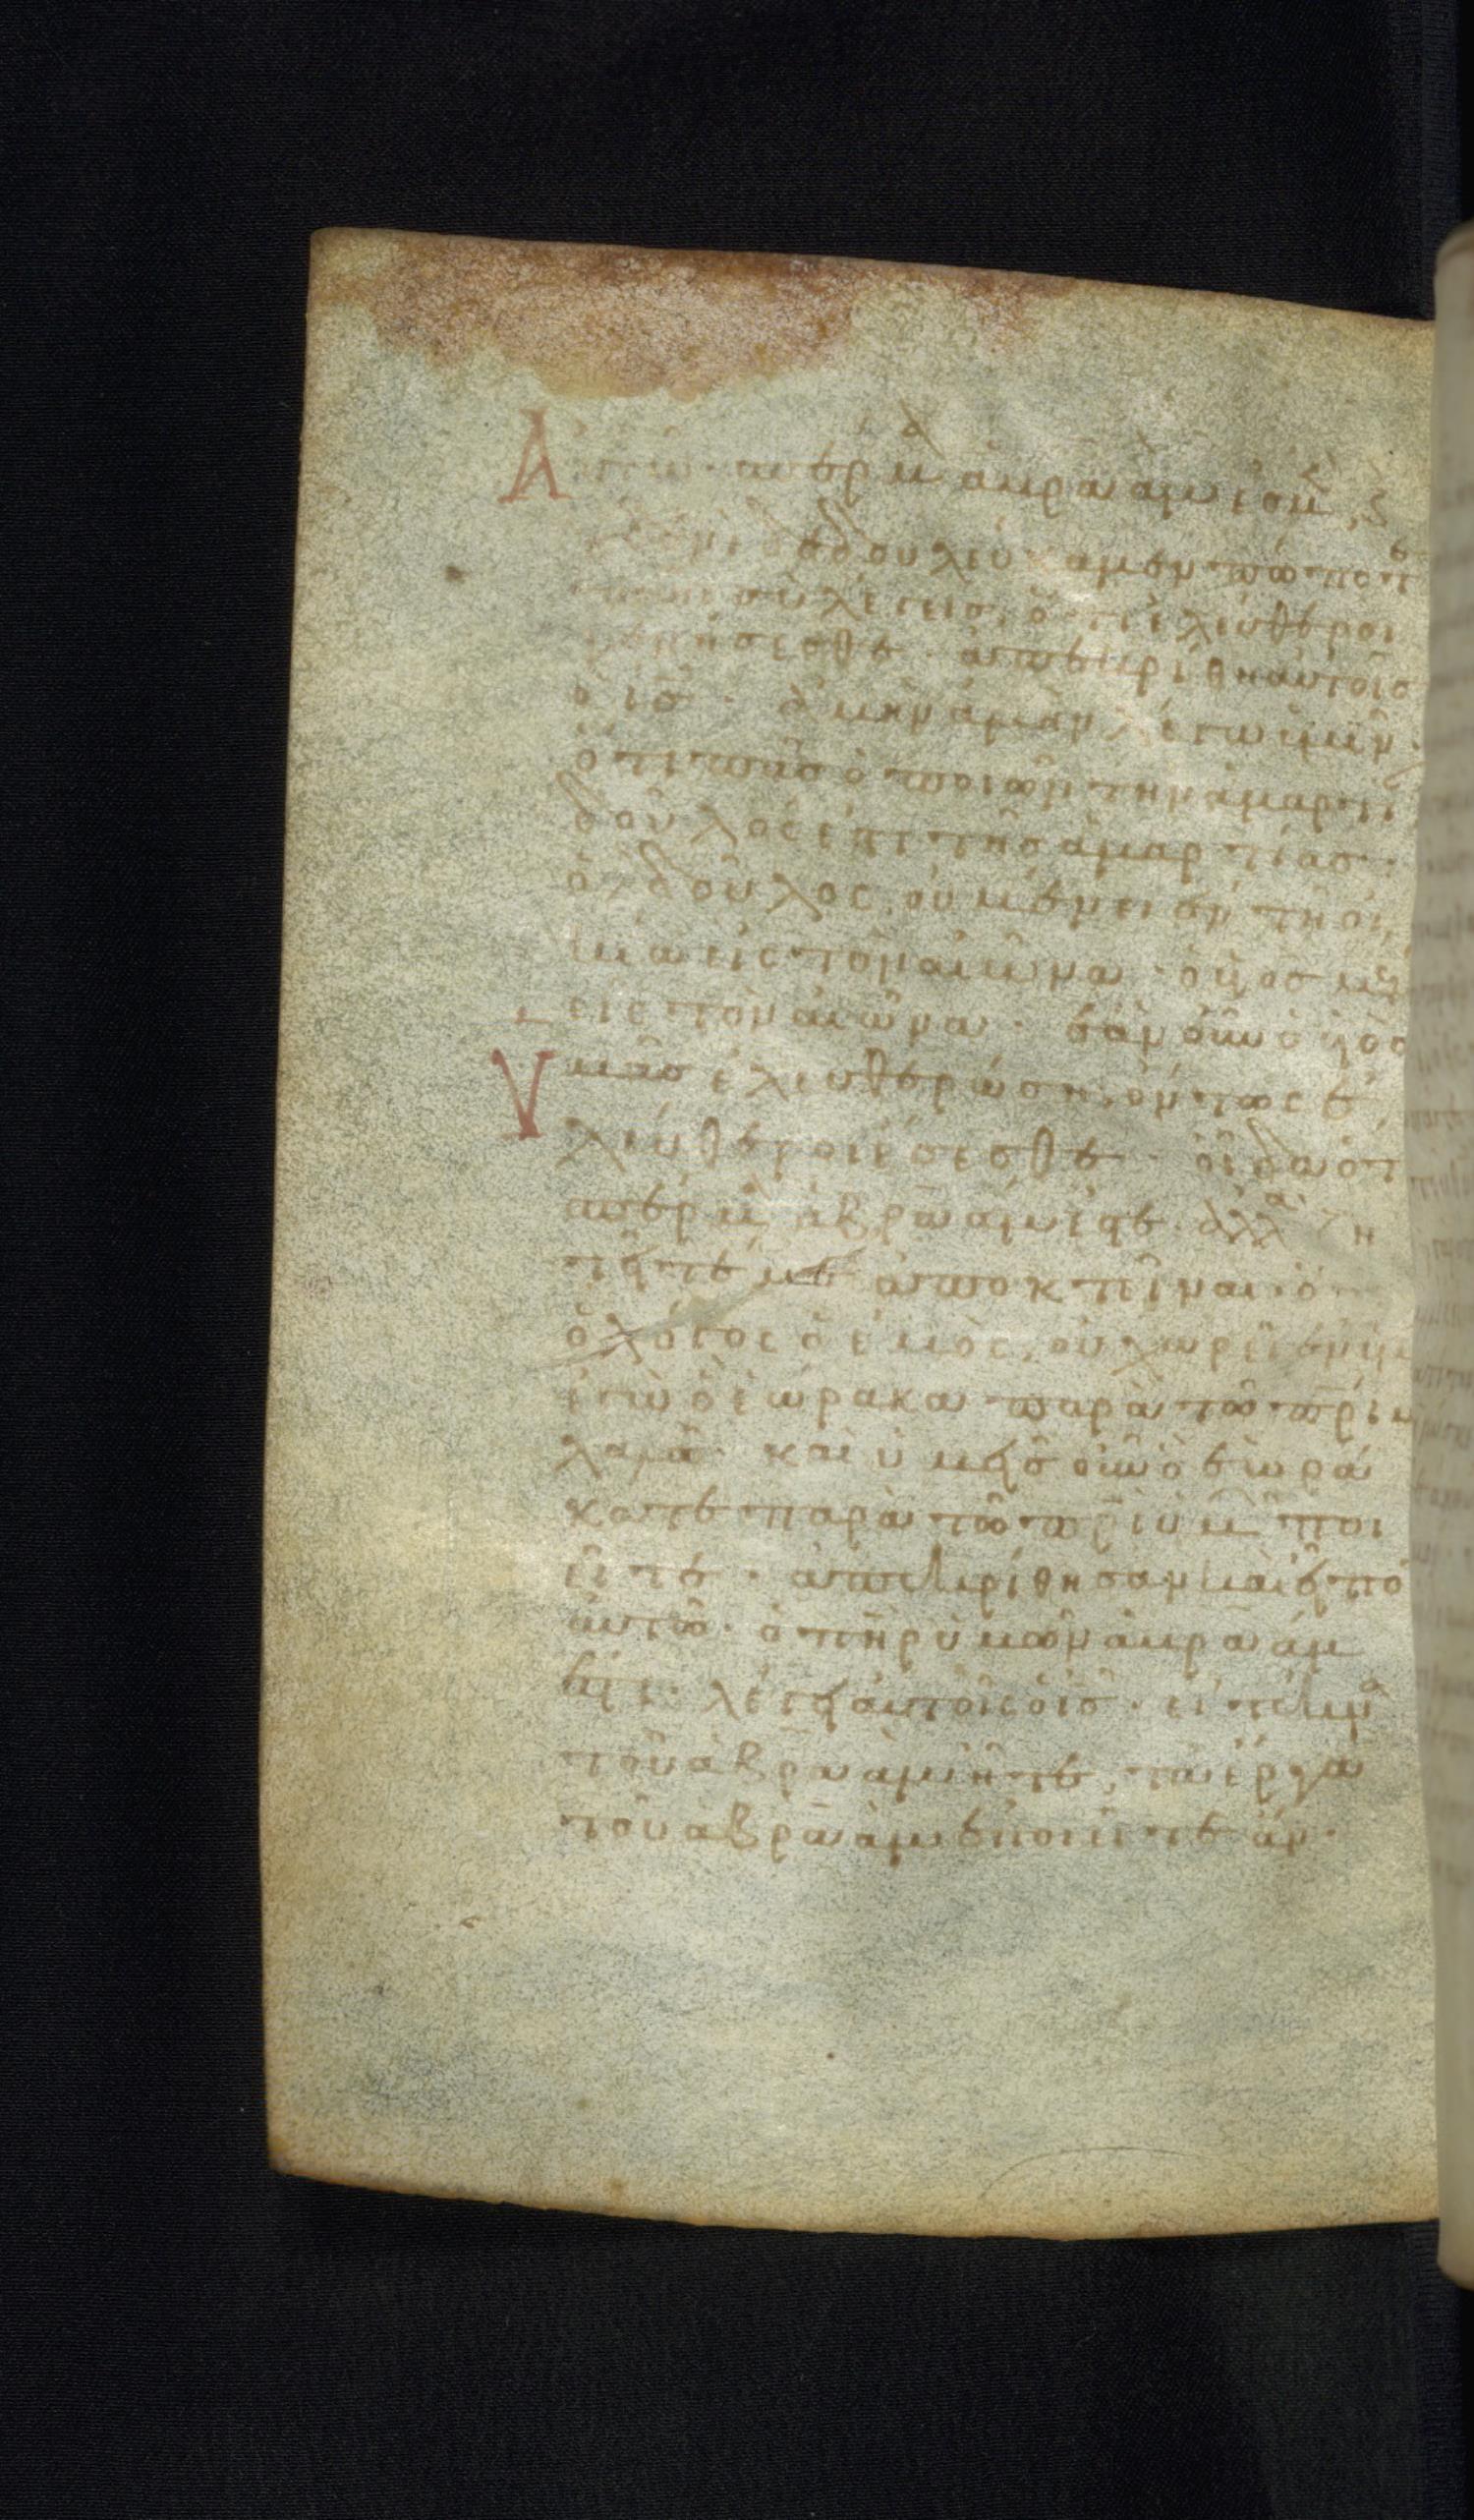 Α ὐτῶ· σπέρμα ἀβρααμ ἐσμ(εν), (καὶ)
οὐδενὶ δεδουλεύκαμεν πώποτε
πῶς σὺ λέγεις, ὅτι ἐλεύθεροι
γενήσεσθε· ἀπεκρίθη αὐτοῖς
ὁ ις· ἀμὴν ἀμὴν λέγω ὑμῖν·
ὅτι πᾶς ὁ ποιῶν τὴν ἁμαρτί
δοῦλός ἐστι τῆς ἁμαρτίας·
ὁ δὲ δοῦλος, οὐ μένει ἐν τῆ οἰ
κία εἰς τὸν αἰῶνα· ὁ υἱὸς μένει
εἰς τὸν αἰῶνα· ἐὰν οὖν ὁ υἱὸς
Υ μᾶς ἐλευθερώση, ὄντως ἐ
λεύθεροι ἔσεσθε· οἶδα ὅτι
σπέρμα ἀβρααμ ἐστε· ἀλλὰ ζη
τεῖτέ με ἀποκτεῖναι· ὅ
ὁ λόγος ὁ ἐμὸς, οὐ χωρεῖ ἐν ὑμ
ἐγὼ ὃ ἑώρακα παρὰ τῶ πρι μ
λαλῶ· καὶ ὑμεῖς οὖν ὃ ἑωρά
κατε παρὰ τῶ πρι ὑμ ποι
εῖτε· ἀπεκρίθησαν καὶ εἶπο
αὐτῶ· ὁ πηρ ἡμῶν ἀβρααμ
ἐστι· λέγει αὐτοῖς ὁ ις· εἰ τέκνα
τοῦ ἀβρααμ ἦτε, τὰ ἔργα
τοῦ ἀβρααμ ἐποιεῖτε ἄν·